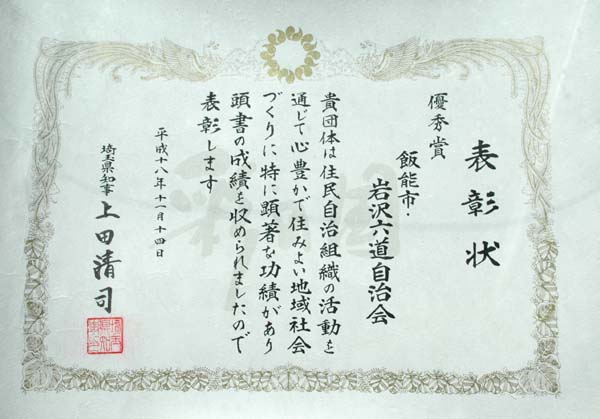 表彰状
優秀賞
飯能市・
岩沢六道自治会
貴団体は住民自治組織の活動を
通じて心豊かで住みよい地域社会
づくりに特に顕著な功績があり
頭書の成績を収められましたので
表彰します
平成十八年十一月十四日
埼玉県知事 上田清司
彩の国